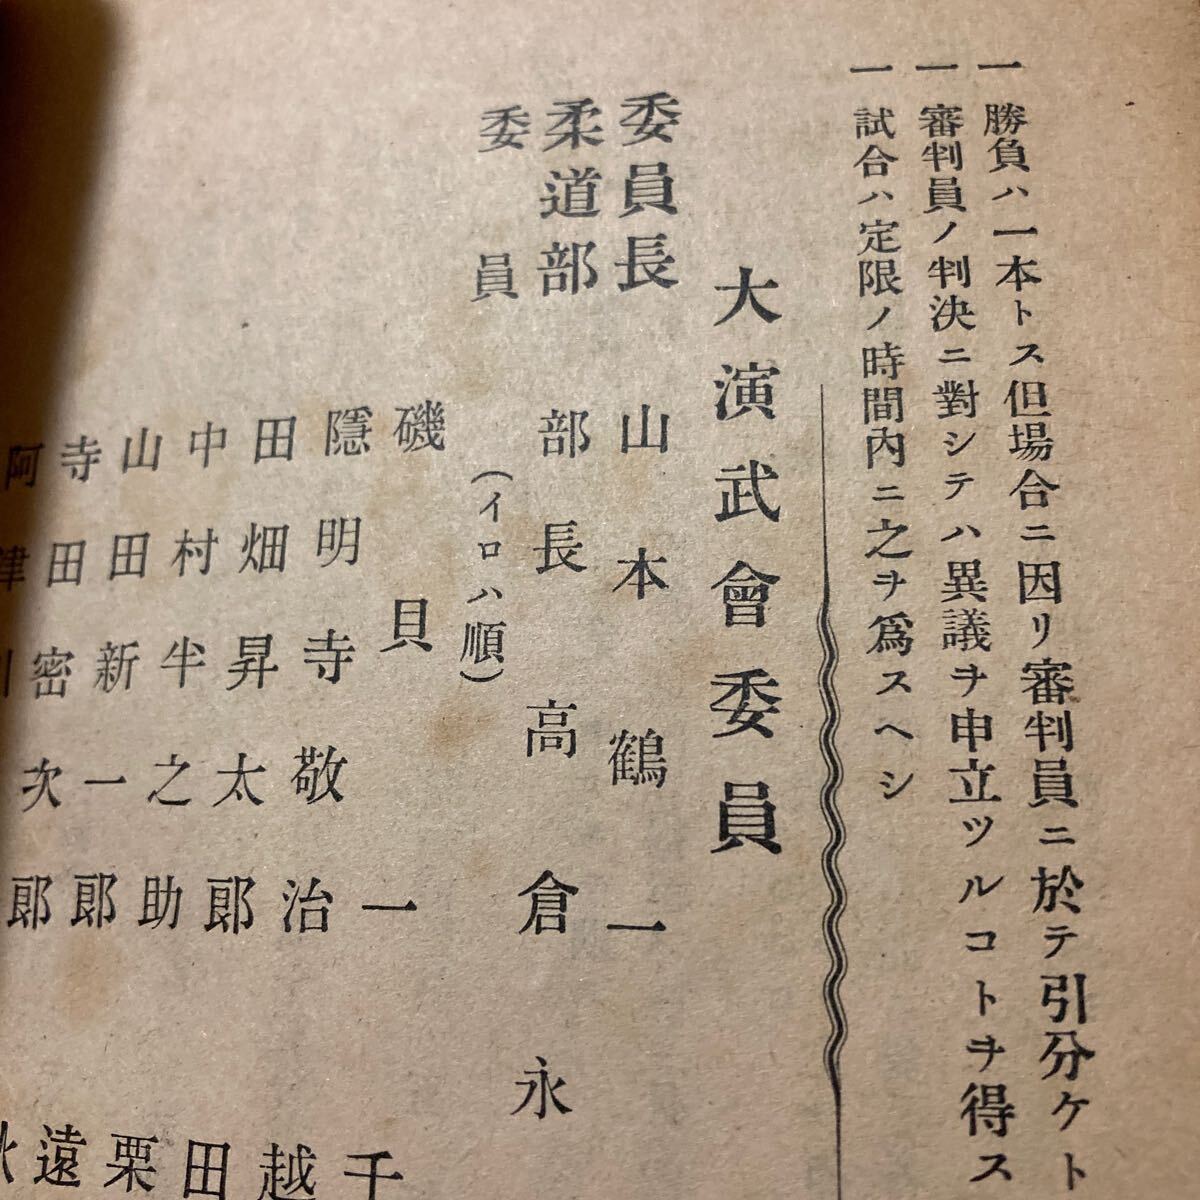 一勝負ハ一本トス但場合ニ因リ審判員ニ於テ引分ケト
一審判員ノ判決ニ對シテハ異議ヲ申立ツルコトヲ得ス
一試合ハ定限ノ時間內ニ之ヲ爲スヘシ
大演武會委員
委員長 山本鶴一
柔道部 部長 高倉永
委員 (イロハ順)
磯貝一
隱明寺敬治
田畑昇太郞
中村半之助
山田新一郞
寺田密次郞
阿津
千
越
田
栗
遠